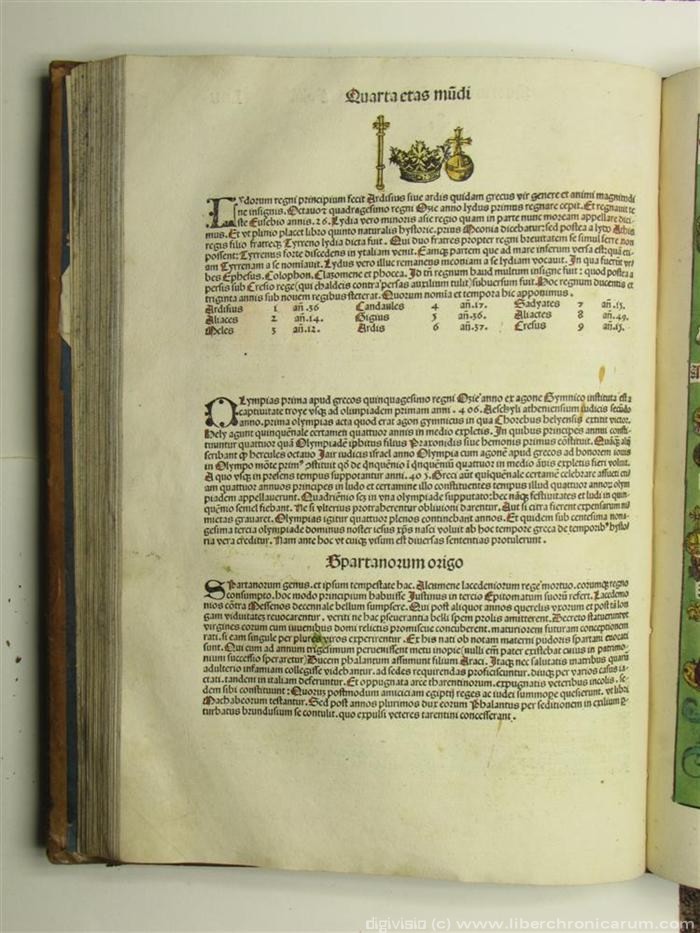 Quarta etas mūdi
Lydorum regni principium fecit Ardisius siue ardis quidam grecus vir genere et animi magnitudi
ne insignis. Octauo et quadragesimo regni Ozie anno lydus primus regnare cepit. Et regnauit te
ste Eusebio annis .26. Lydia vero minoris asie regio quam in parte nunc moream appellare dici
mus. Et vt plinio placet libro quinto naturalis hystorie. prius Meonia dicebatur: sed postea a lydo Athis
regis filio fratreqz Tyrreno lydia dicta fuit. Qui duo fratres propter regni breuitatem se simul ferre non
possent: Tyrrenus sorte discedens in ytaliam venit. Eamqz partem que ad mare inferum versa est: quā eti-
am Tyrrenam a se nominauit. Lydus vero illuc remanens meoniam a se lydiam vocauit. In qua fuerūt vr
bes Ephesus. Colophon. Clazomene et phocea. Id tn̄ regnum haud multum insigne fuit: quod postea a
persis sub Cresio rege (qui chaldeis contra persas auxilium tulit) subuersum fuit. Hoc regnum ducentis et
triginta annis sub nouem regibus steterat. Quorum nomīa et tempora hic apponimus.
Ardisius 1 an̄.36 Candaules 4 an̄.17. Sadyates 7 an̄.15.
Aliaces 2 an̄.14. Gigius 5 an̄.36. Aliactes 8 an̄.49.
Meles 3 an̄.12. Ardis 6 an̄.37. Cresus 9 an̄.15.
OLympias prima apud grecos quinquagesimo regni Ozie anno ex agone Gymnico instituta est a
captiuitate troye vsqz ad olimpiadem primam anni .406. Aeschyli atheniensium iudicis secūdo
anno. prima olympias acta quod erat agon gymnicus in qua Chorebus helyensis extitit victor.
Hely agunt quinquēnale certamen quattuor annis in medio expletis. In quibus principes annis consti-
tuuntur quattuor quā Olympiadē iphitus filius Praxonidis siue hemonis primus cōstituit. Quāqz alij
scribant qz hercules octauo Jair iudicis israel anno Olympia cum agone apud grecos ad honorem iouis
in Olympo mōte
A quo vsqz in presens tempus supputantur anni .403. Greci aūt quīquēnale certamē celebrare assueti cū
am quattuor annuos principes in ludo et certamine illo constituentes tempus illud quattuor annoꝝ olym
piadem appellauerunt. Quadriēnio seꝫ in vna olympiade supputato: hec nāqz festiuitates et ludi in quin-
quēnio semel fiebant. Ne si vlterius protraherentur obliuioni darentur. Aut si citra fierent expensarum ni
mietas grauaret. Olympias igitur quattuor plenos continebant annos. Et quidem sub centesima nona-
gesima tercia olympiade dominus noster iesus xp̄s nasci voluit ab hoc tempore greca de temporibꝰ hysto
ria vera creditur. Nam ante hoc vt cuiqz visum est diuersas sententias protulerunt.
Spartanorum origo
SPartanorum genus. et ipsum tempestate hac. Alcumene lacedeniorum rege mortuo. eorumqz regno
consumpto. hoc modo principium habuisse Justinus in tercio Epitomatum suorū refert. Lacedemo
nios cōtra Messenos decennale bellum sumpsere. Qui post aliquot annos querelis vxorum et post tā lon
gam viduitates reuocarentur. veriti ne hac pseuerantia belli spem prolis amitterent. Decreto statuerunt vt
virgines eorum cum iuuenibus domi relictis promiscue concuberent. maturiorem futuram conceptionem
rati. si eam singule per plures viros experirentur. Et his nati ob notam materni pudoris spartani euocati
sunt. Qui cum ad annum trigesimum peruenissent metu inopie (nulli em̄ pater existebat cuius in patrimo-
nium successio speraretur) Ducem phalantum assumunt filium Araci. Itaqz nec salutatis matribus quarū
adulterio infamiam collegisse videbantur. ad sedes requirendas proficiscuntur. diuqz per varios casus ia-
ctati. tandem in italiam deferuntur. Et oppugnata arce tharentinorum. expugnatis veteribus incolis. se-
dem sibi constituunt: Quorum postmodum amiciciam egiptij reges ac iudei summope quesierunt. vt libri
Machabeorum testantur. Sed post annos plurimos dux eorum Phalantus per seditionem in exilium p-
turbatus brundusium se contulit. quo expulsi veteres tarentini concesserant.
digivisio (c) www.liberchronicarum.com